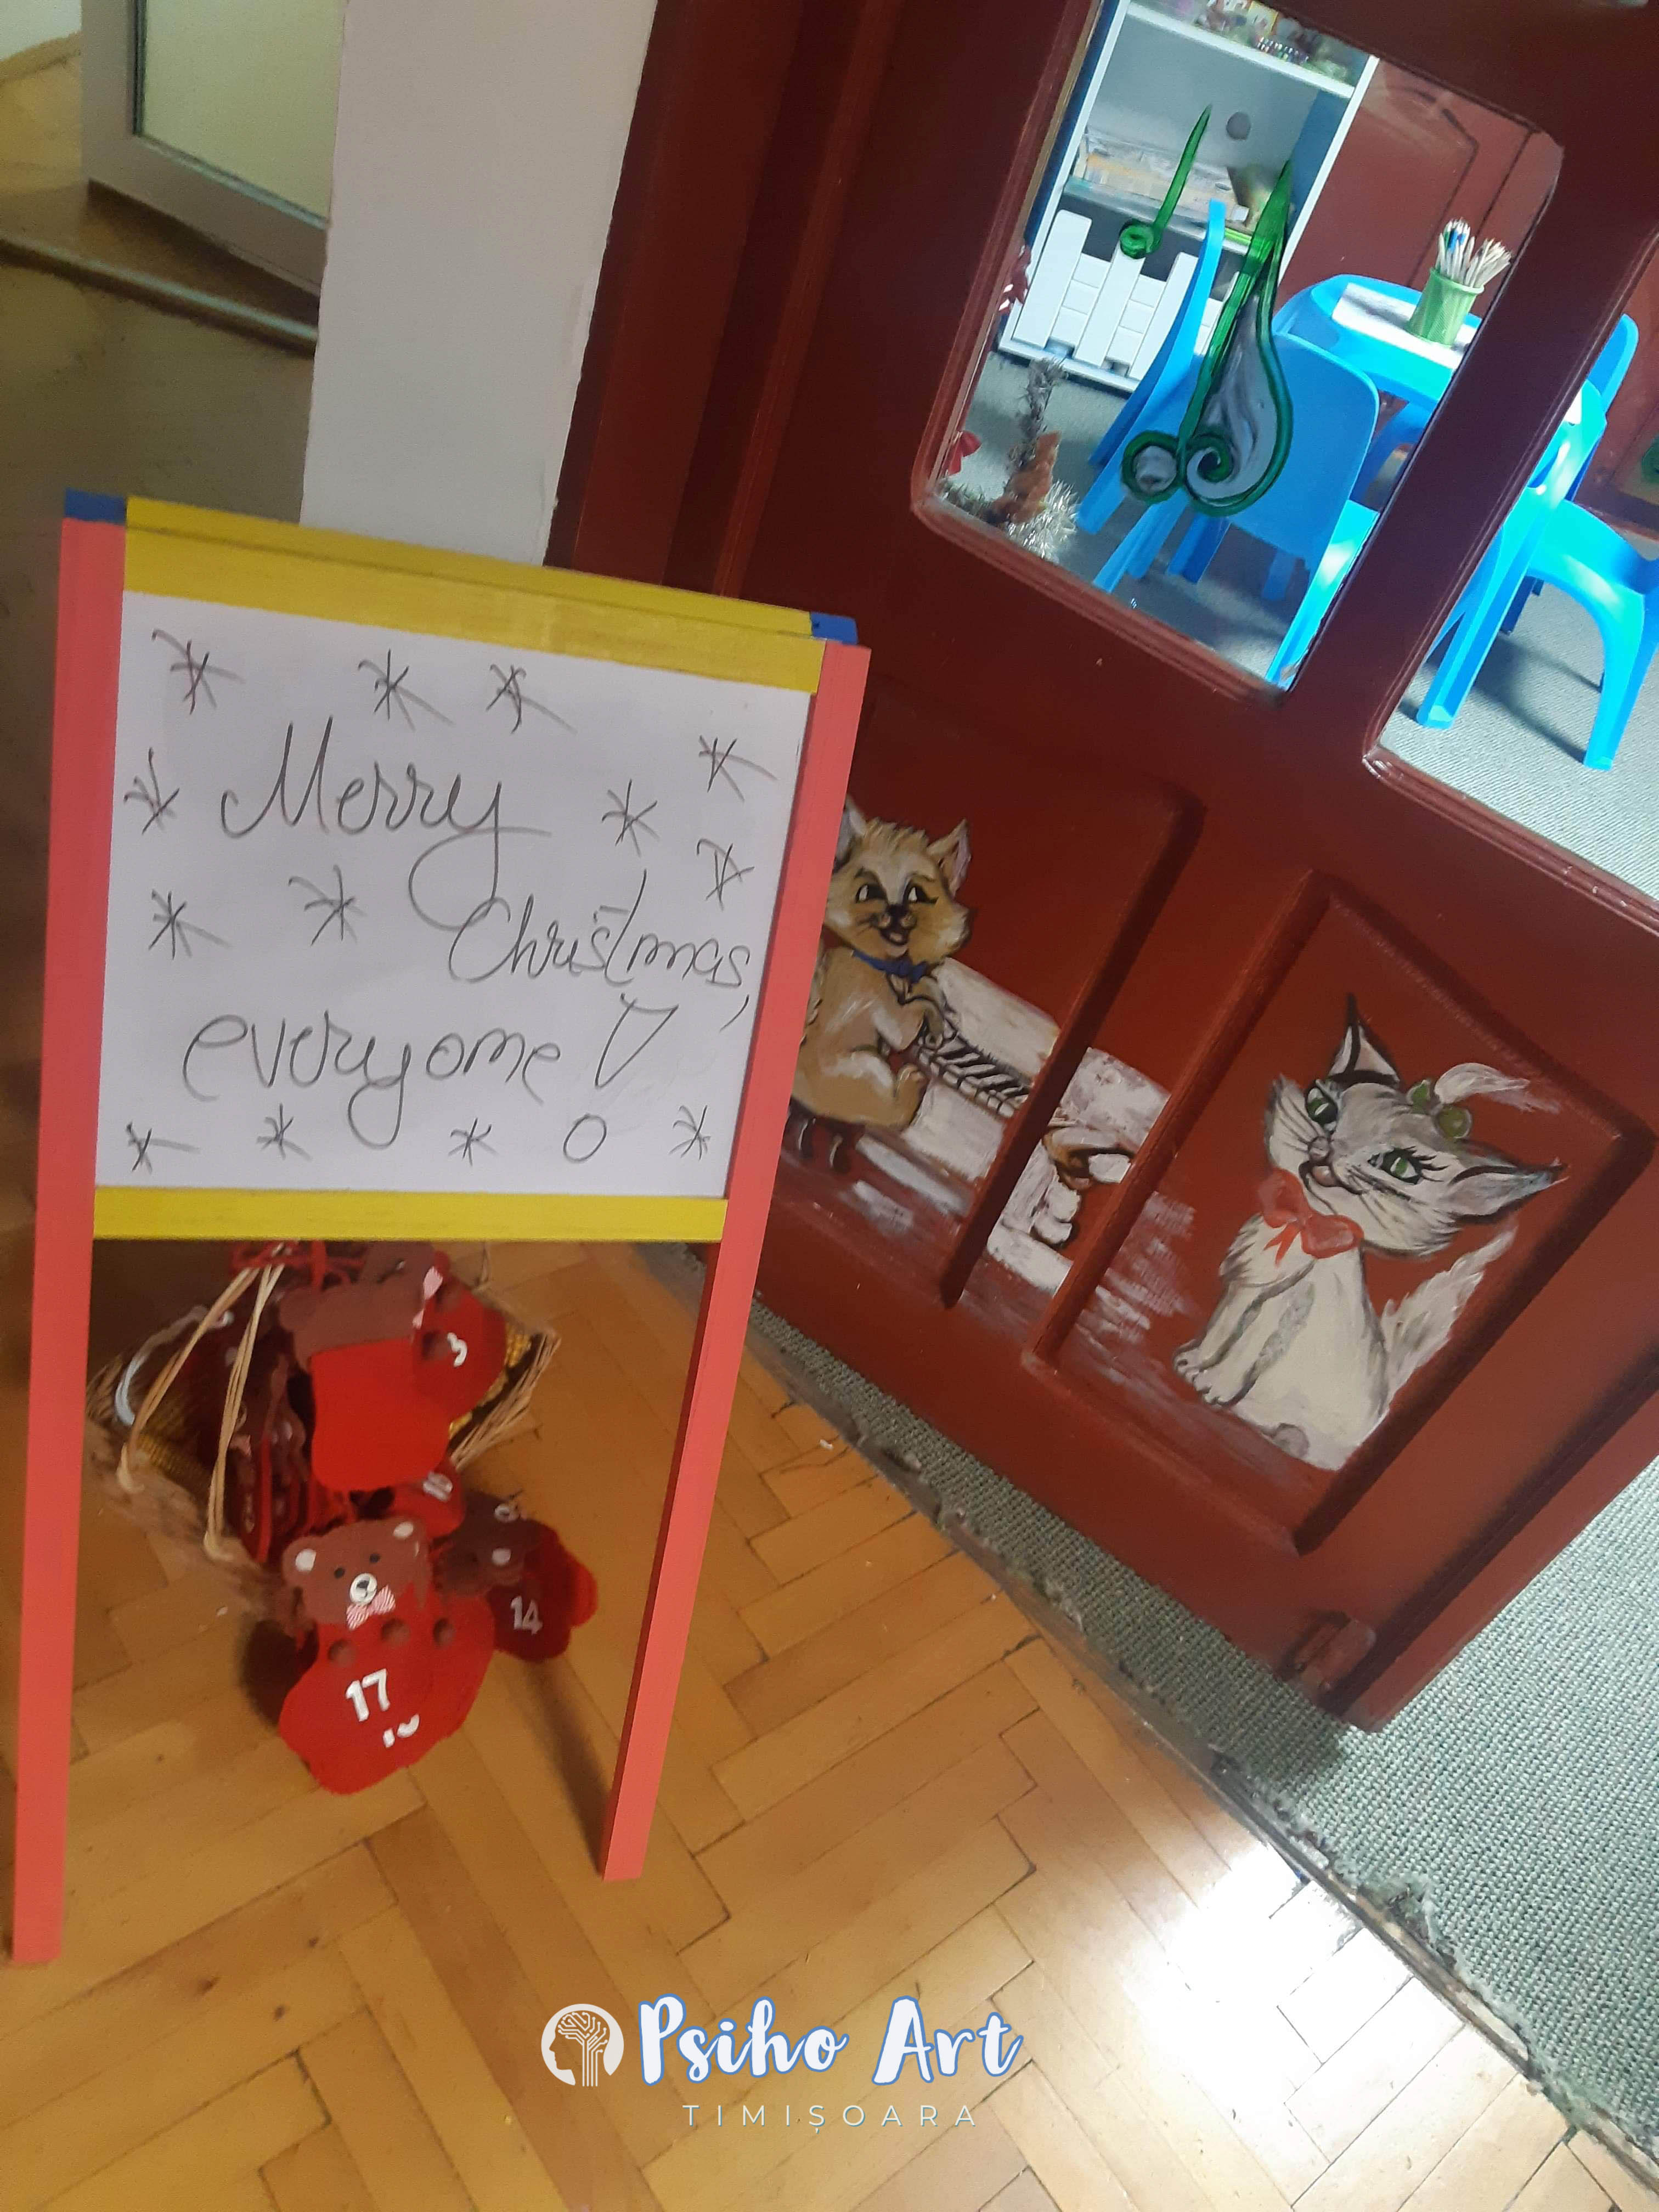 Merry
Christmas,
everyone!
3
14
17
Psiho Art
TIMIȘOARA